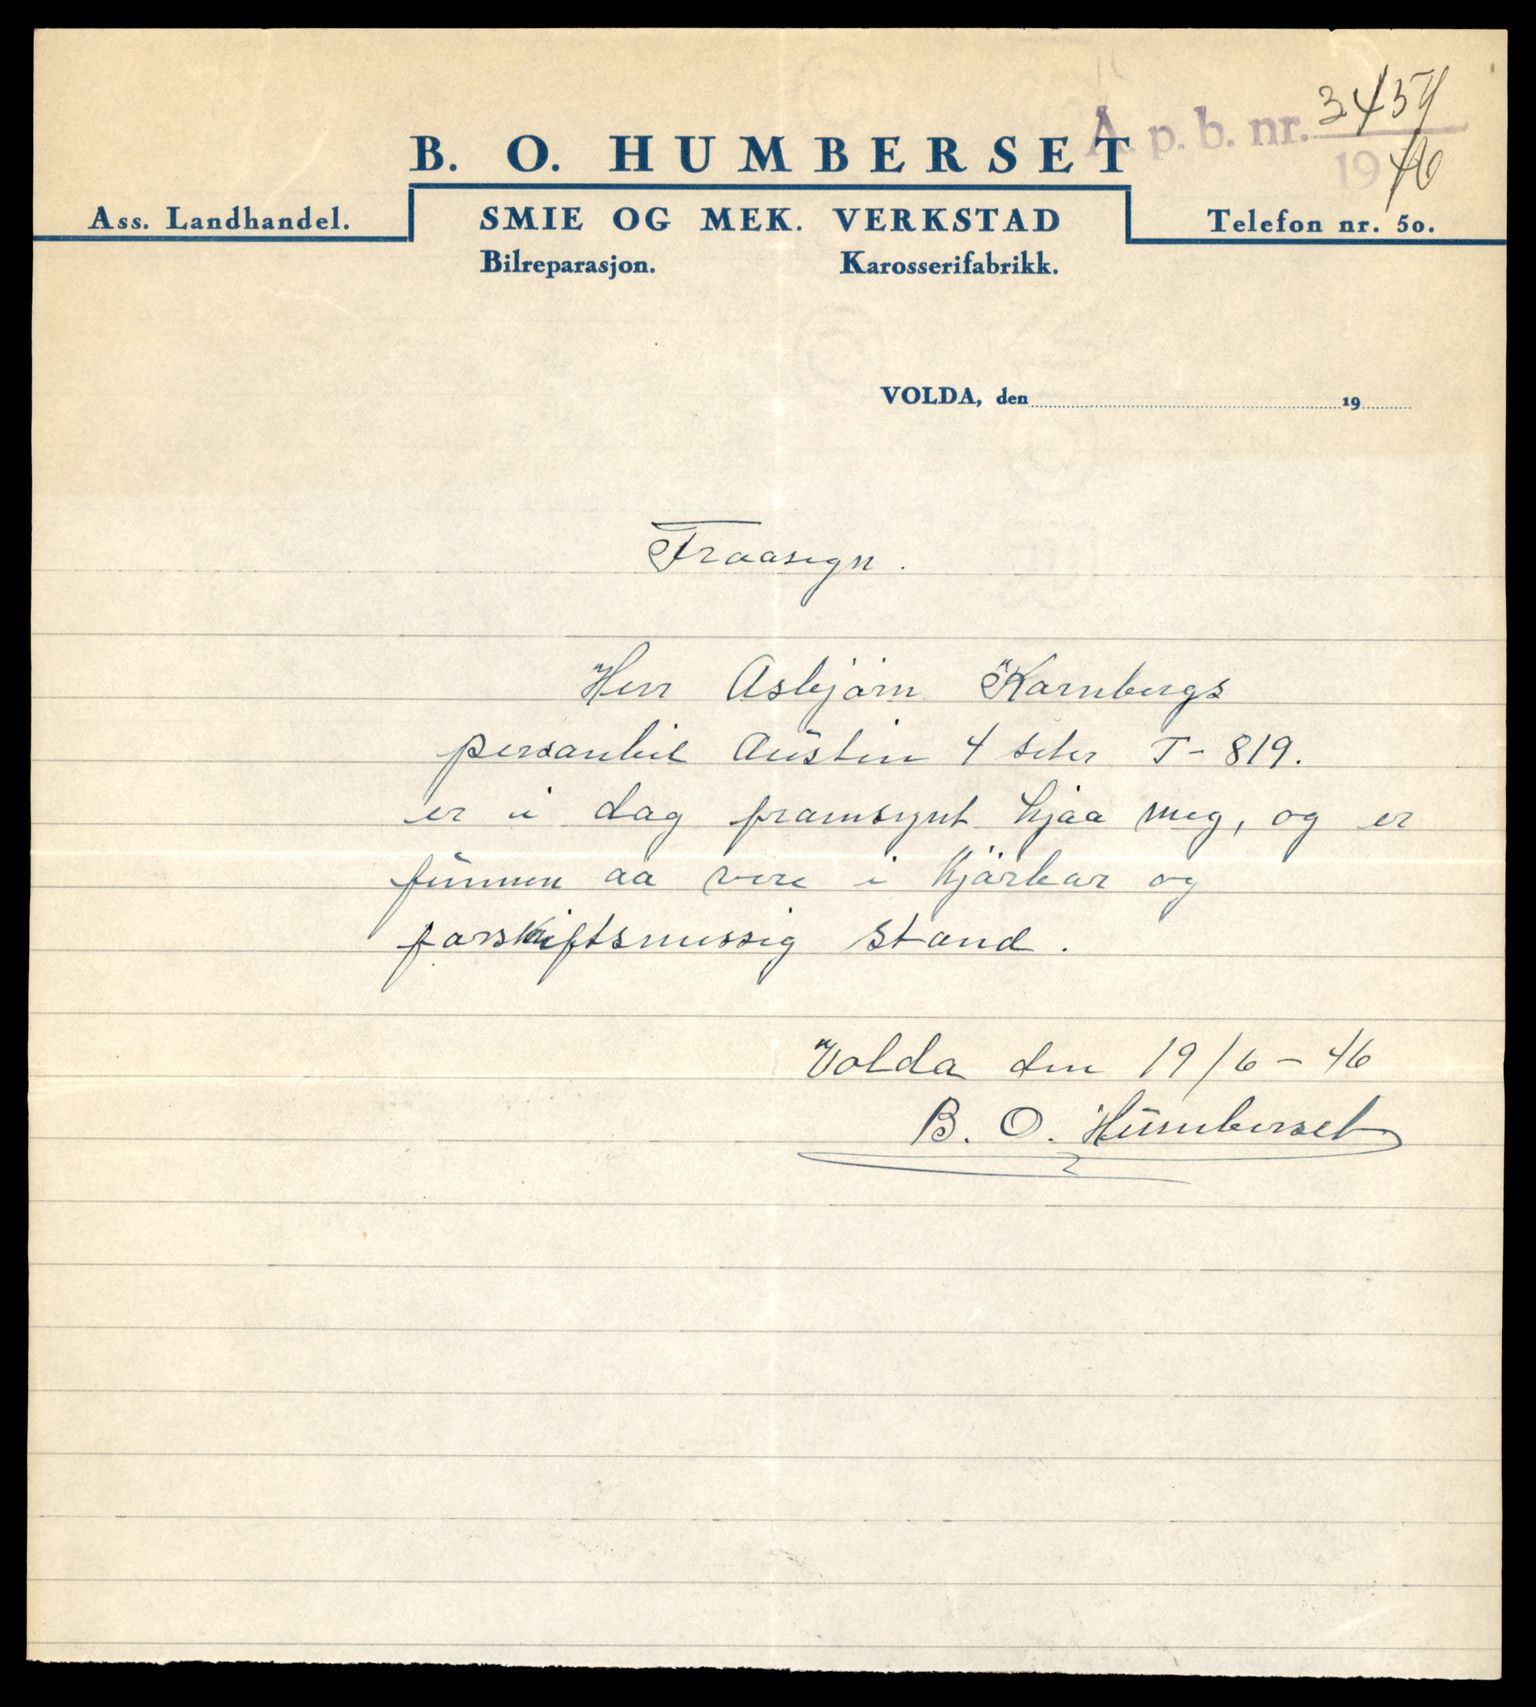 A p. b. nr. 3454
1946
B. O. HUMBERSET
Ass. Landhandel.
SMIE OG MEK. VERKSTAD
Telefon nr. 50.
Bilreparasjon. Karosserifabrikk.
VOLDA, den 19
Fraasegn.
Herr Asbjörn Kornbergs
personbil Austin 4 seter T-819.
er i dag framsynt hjaa meg, og er
funnen aa vere i kjörbar og
forskiftsmessig stand.
Volda den 19/6-46
B. O. Humberset